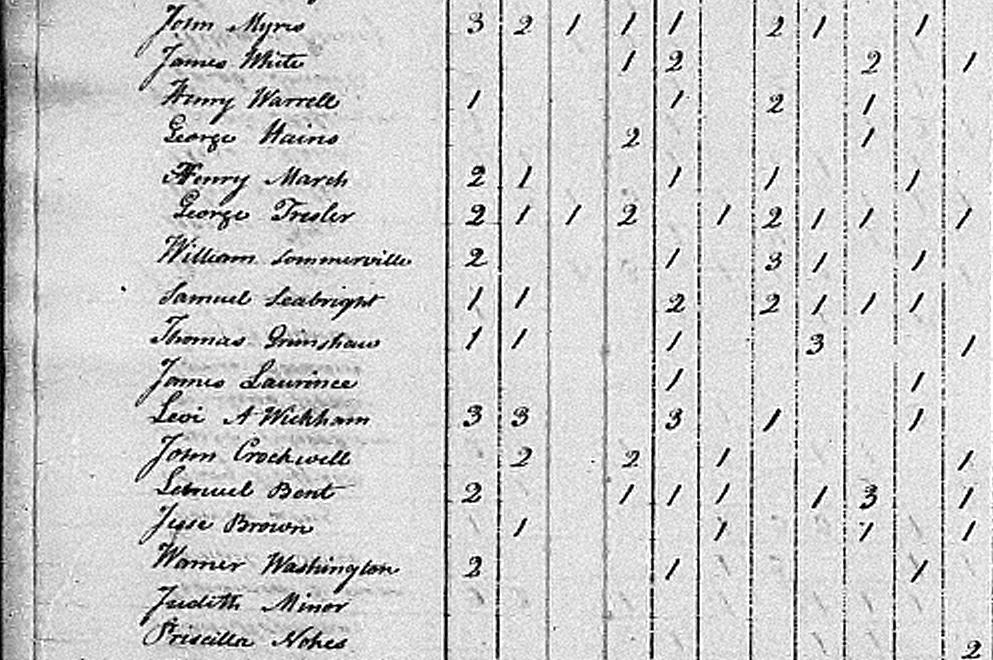 John Myres 3 2 1 1 1 2 1 1
James White 1 2 2 1
Henry Warrell 1 1 2 1
George Hains 2 1
Henry March 2 1 1 1 1
George Tresler 2 1 1 2 1 2 1 1 1
William Sommerville 2 1 3 1 1
Samuel Seabright 1 1 2 2 1 1 1
Thomas Grimshaw 1 1 1 3 1
James Laurince 1 1
Levi A Wickham 3 3 3 1 1
John Crockwell 2 2 1 1
Lemuel Bent 2 1 1 1 1 3 1
Jesse Brown 1 1 1 1
Warner Washington 2 1 1
Judith Minor
Priscilla Nokes 2